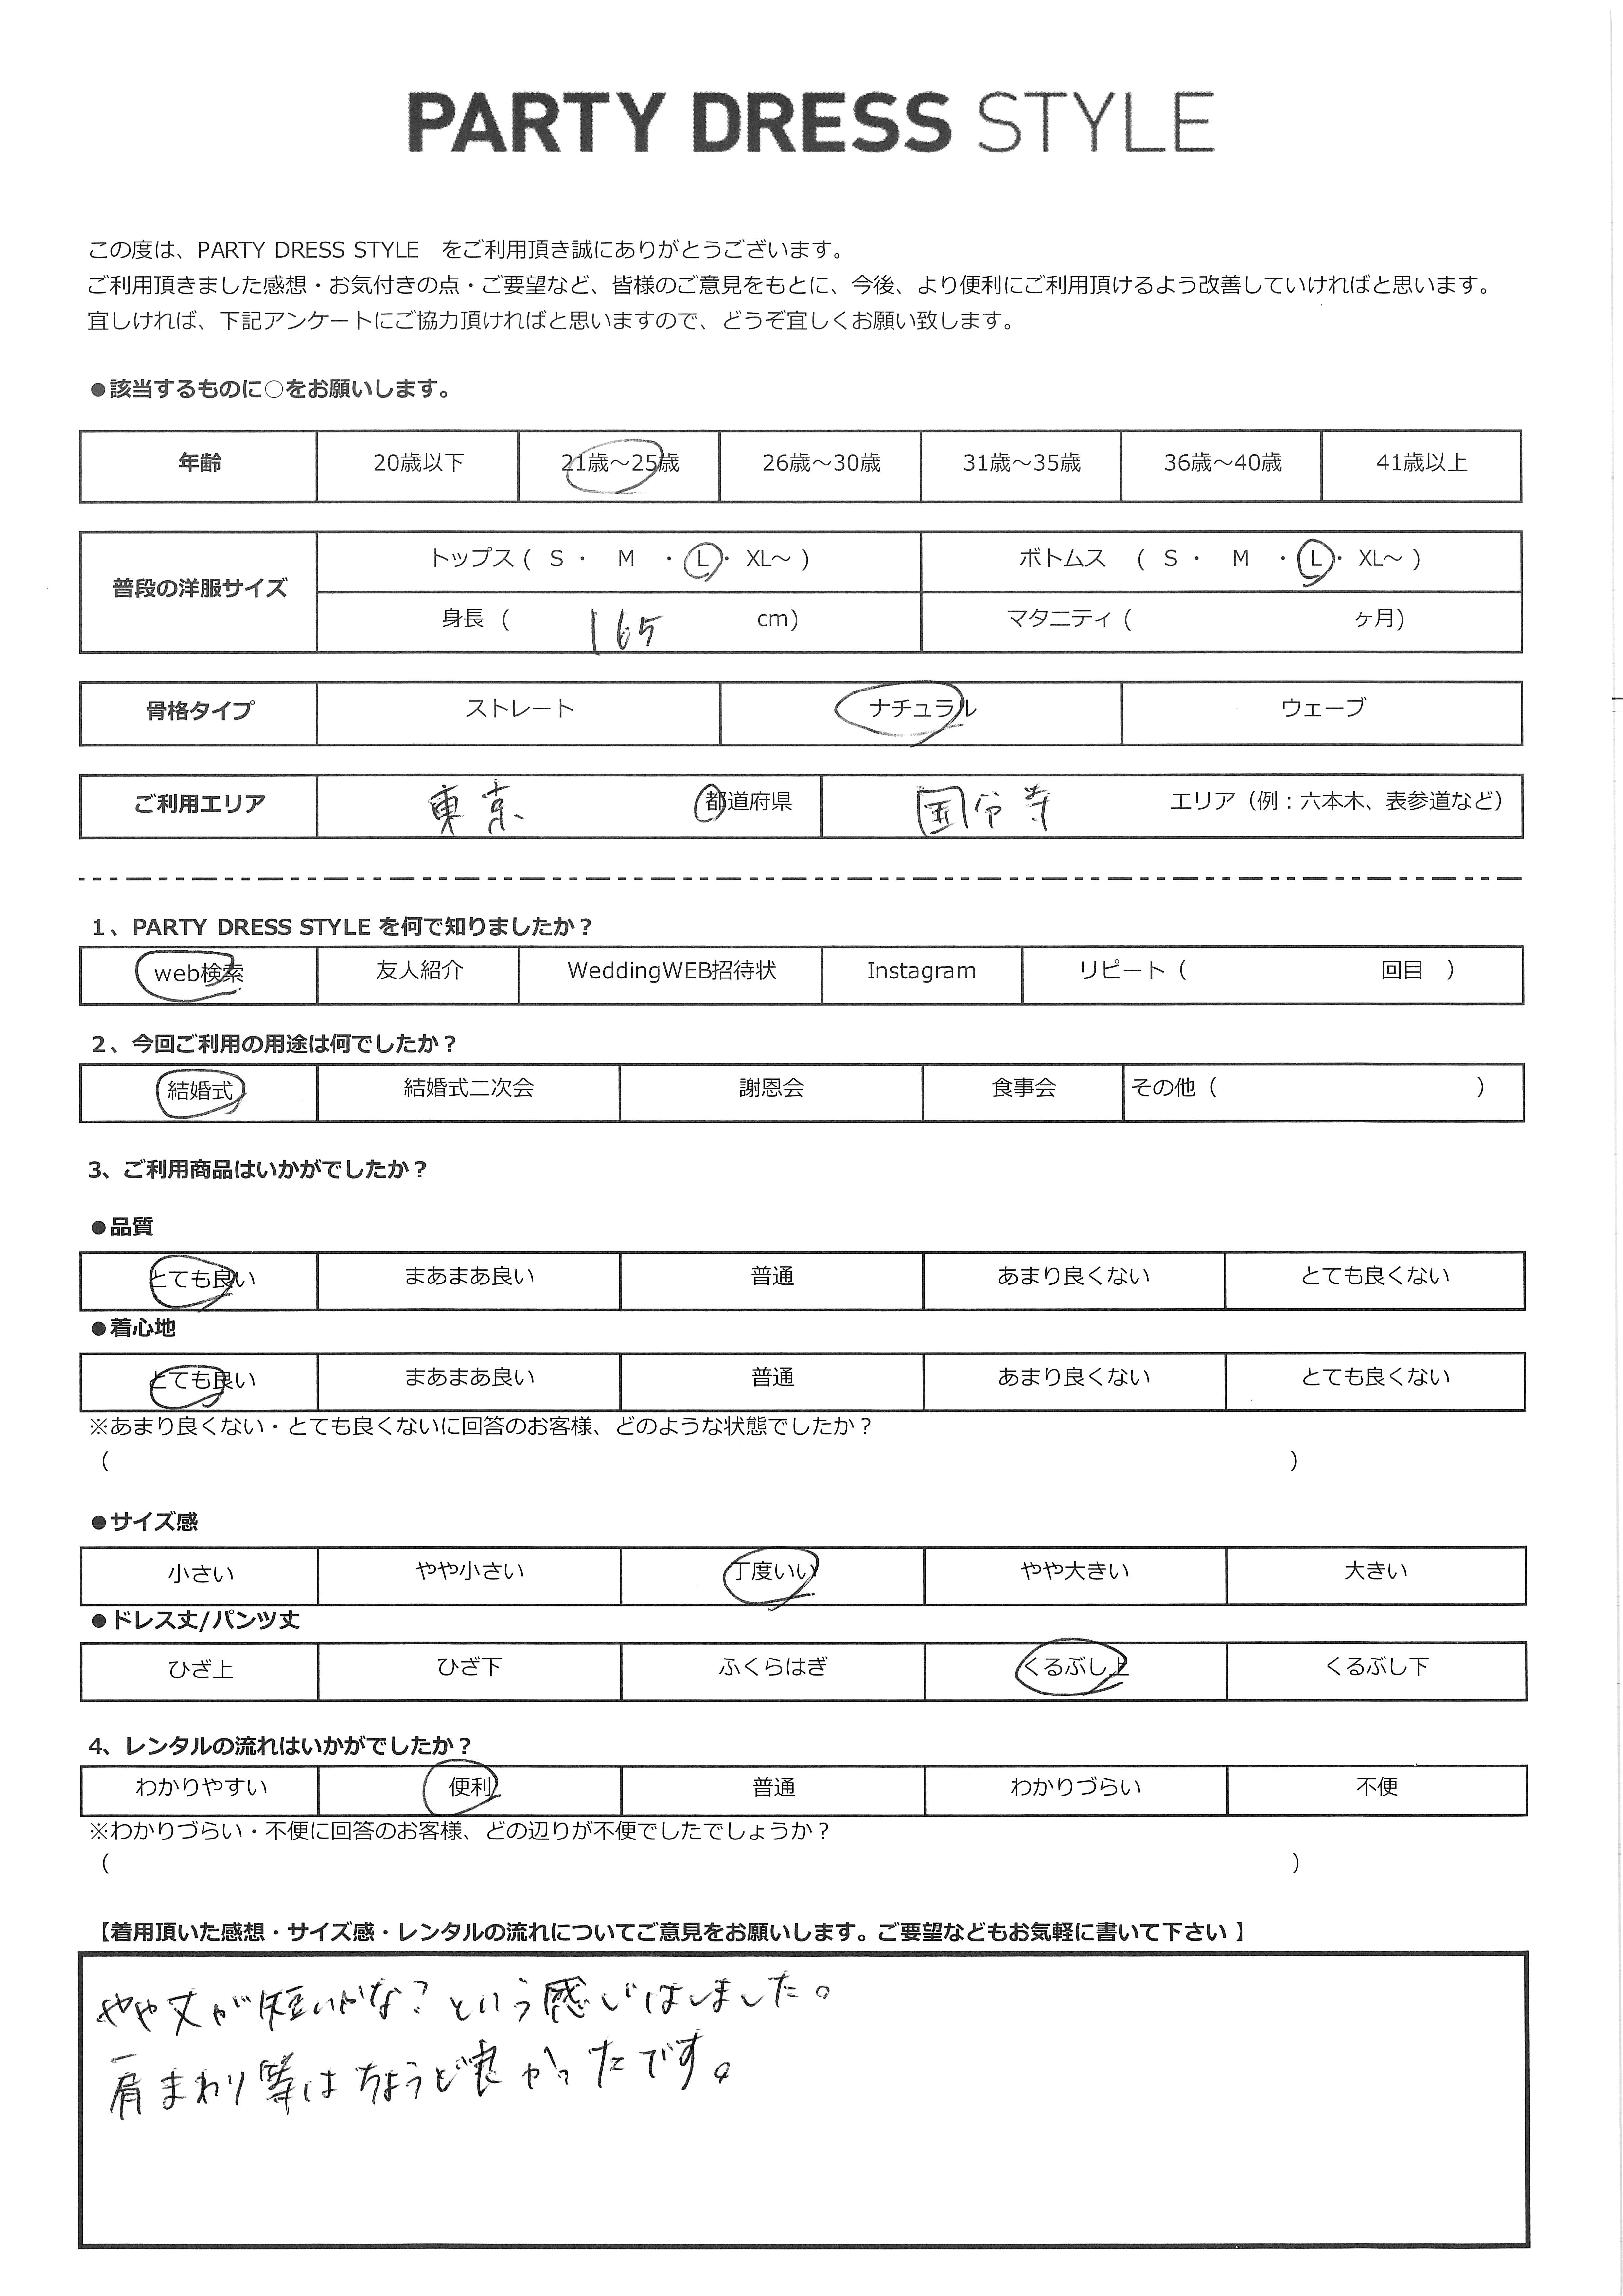 PARTY DRESS STYLE
この度は、PARTY DRESS STYLE　をご利用頂き誠にありがとうございます。
ご利用頂きました感想・お気付きの点・ご要望など、皆様のご意見をもとに、今後、より便利にご利用頂けるよう改善していければと思います。
宜しければ、下記アンケートにご協力頂ければと思いますので、どうぞ宜しくお願い致します。
●該当するものに○をお願いします。
年齢 20歳以下 21歳～25歳 26歳～30歳 31歳～35歳 36歳～40歳 41歳以上
普段の洋服サイズ トップス ( S ・ M ・ L ・ XL～ ) ボトムス ( S ・ M ・ L ・ XL～ )
身長 ( 165 cm) マタニティ ( ヶ月)
骨格タイプ ストレート ナチュラル ウェーブ
ご利用エリア 東京 都道府県 国分寺 エリア（例：六本木、表参道など）
1、PARTY DRESS STYLE を何で知りましたか？
web検索 友人紹介 WeddingWEB招待状 Instagram リピート（ 回目 ）
2、今回ご利用の用途は何でしたか？
結婚式 結婚式二次会 謝恩会 食事会 その他（ ）
3、ご利用商品はいかがでしたか？
●品質
とても良い まあまあ良い 普通 あまり良くない とても良くない
●着心地
とても良い まあまあ良い 普通 あまり良くない とても良くない
※あまり良くない・とても良くないに回答のお客様、どのような状態でしたか？
（ ）
●サイズ感
小さい やや小さい 丁度いい やや大きい 大きい
●ドレス丈/パンツ丈
ひざ上 ひざ下 ふくらはぎ くるぶし上 くるぶし下
4、レンタルの流れはいかがでしたか？
わかりやすい 便利 普通 わかりづらい 不便
※わかりづらい・不便に回答のお客様、どの辺りが不便でしたでしょうか？
（ ）
【着用頂いた感想・サイズ感・レンタルの流れについてご意見をお願いします。ご要望などもお気軽に書いて下さい 】
やや丈が短いかな？という感じはしました。
肩まわり等はちょうど良かったです。